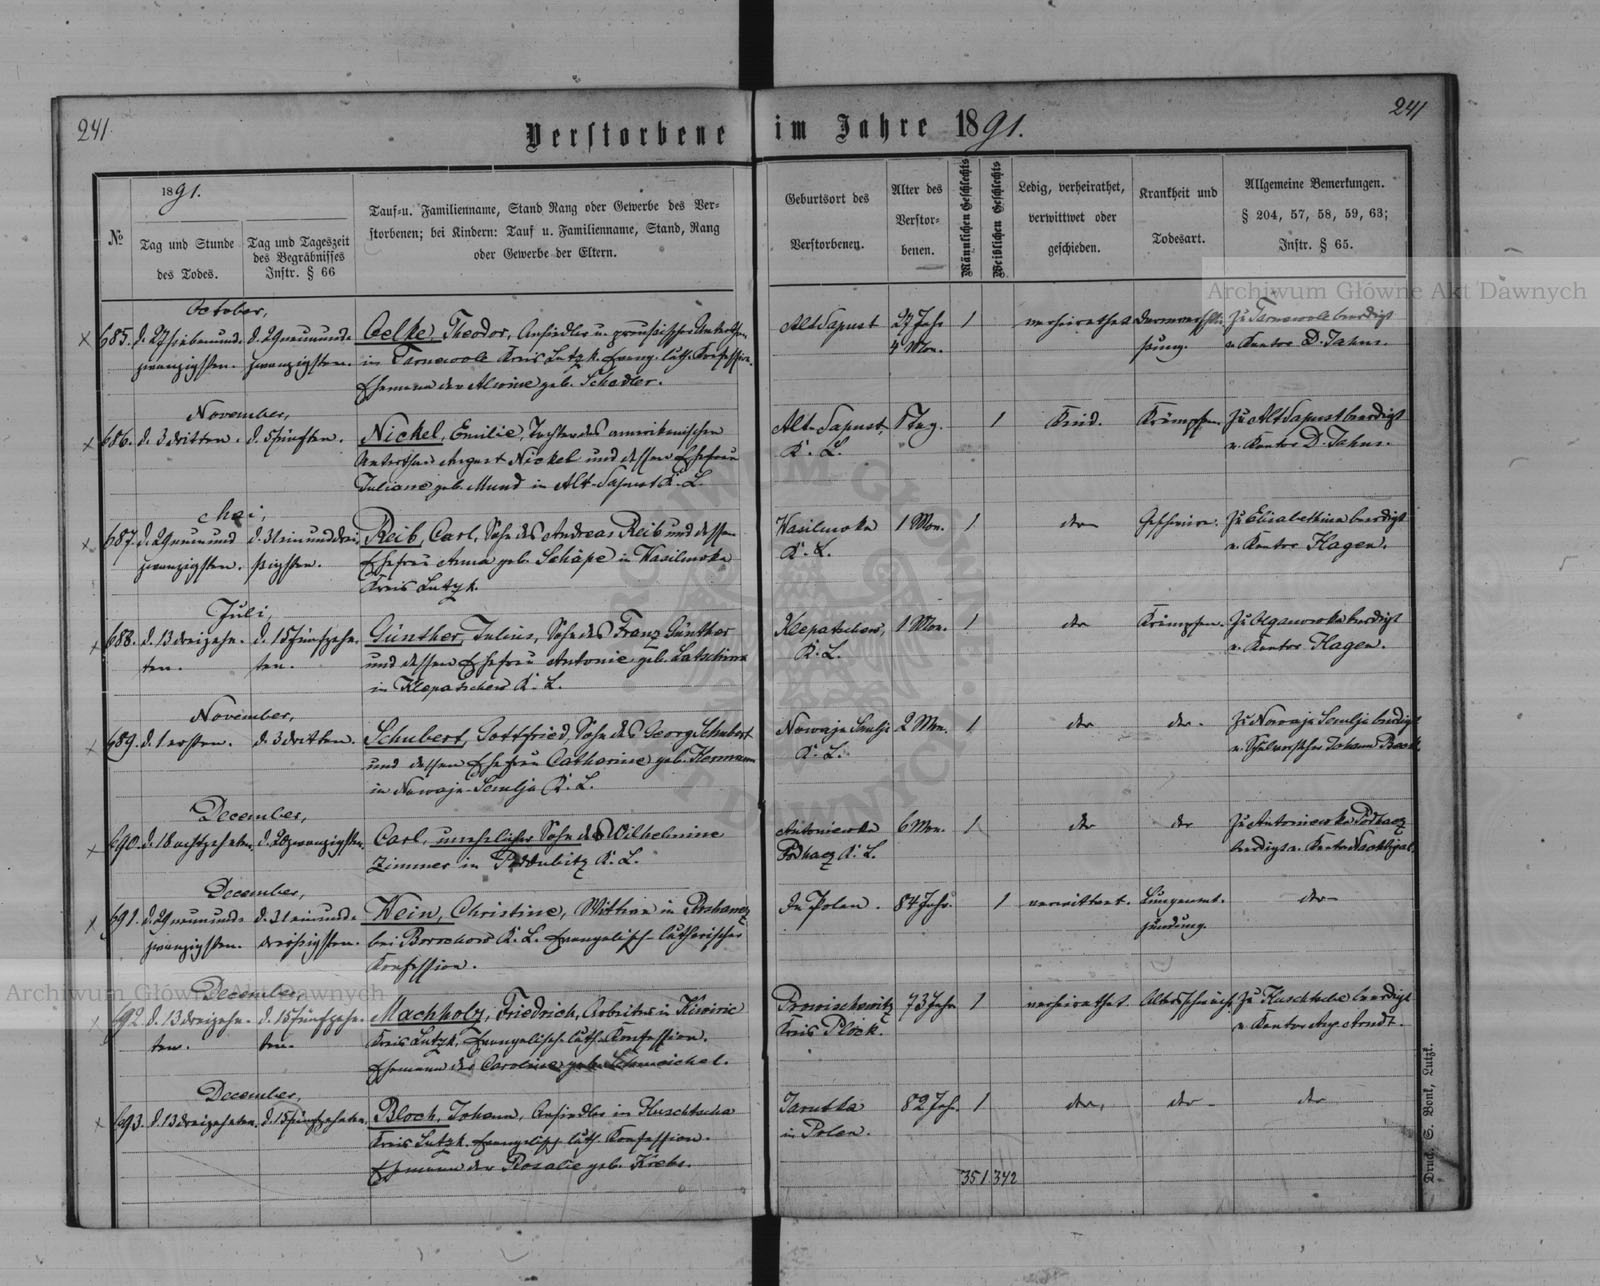 241
241
Verstorbene im Jahre 1891.
№
1891.
Tag und Stunde
des Todes.
Tag und Tageszeit
des Begräbnisses
Instr. § 66
Tauf-u. Familienname, Stand Rang oder Gewerbe des Ver-
storbenen; bei Kindern: Tauf u. Familienname, Stand, Rang
oder Gewerbe der Eltern.
Geburtsort des
Verstorbenen.
Alter des
Verstor-
benen.
Männlichen Geschlechts
Weiblichen Geschlechts
Ledig, verheirathet,
verwittwet oder
geschieden.
Krankheit und
Todesart.
Allgemeine Bemerkungen.
§ 204, 57, 58, 59, 63;
Instr. § 65.
Archiwum Główne Akt Dawnych
October,
685. d. 27 siebenund- d. 29 neunund- Oelke, Theodor, Ansiedler u. preussischer Unterthan Alt Sapust 27 Jahr 1 verheirathet zu Tarnowola beerdigt
zwanzigsten. zwanzigsten. in Tarnowola Kreis Lutzk. Evang. luth. Konfession. 4 Mon. v. Kantor D. Jahns.
Ehemann der Alwine geb. Schadler.
November,
686. d. 3 dritten. d. 5 fünften. Nickel, Emilie, Tochter des amerikanischen Alt-Sapust, 1 Tag. 1 Kind. Krämpfen. zu Alt Sapust beerdigt
Unterthan August Nickel und dessen Ehefrau K. L. v. Kantor D. Jahns.
Juliane geb. Mund in Alt-Sapust K. L.
Mai,
687. d. 29 neunund d. 31 einunddrei- Reib, Carl, Sohn des Andreas Reib und dessen Wasilewka 1 Mon. 1 do zu Elisabethin beerdigt
zwanzigsten. ssigsten. Ehefrau Anna geb. Schäpe in Wasilewka K. L. v. Kantor Hagen.
Kreis Lutzk.
Juli,
688. d. 13 dreizehn- d. 15 fünfzehn- Günther, Julius, Sohn des Franz Günther Klepatschew, 1 Mon. 1 do Krämpfen. zu beerdigt
ten. ten. und dessen Ehefrau Antonie geb. K. L. v. Kantor Hagen.
in Klepatschew K. L.
November,
689. d. 1 ersten. d. 3 dritten. Schubert, Gottfried, Sohn des Georg Schubert Nowaja Semlja 2 Mon. 1 do do. zu Nowaja Semlja beerdigt
und dessen Ehefrau Catharine geb. K. L. v. Johann
in Nowaja-Semlja K. L.
December,
690. d. 18 achtzehnten. d. 20 zwanzigsten. Carl, unehelicher Sohn der Wilhelmine Antoniewka 6 Mon. 1 do do zu Antoniewka Podhaez
Zimmer in Poddubitz K. L. Podhaez K. L. beerdigt v. Kantor Nachtigal.
December,
691. d. 29 neunund- d. 31 einund- Wein, Christine, Wittwe in In Polen. 84 Jahr. 1 verwittwet. Lungenent- do
zwanzigsten. dreissigsten. bei Borochow K. L. Evangelisch-lutherischer zündung.
Konfession.
December,
692. d. 13 dreizehn- d. 15 fünfzehn- Machholz, Friedrich, Arbeiter in Kiwiric 73 Jahr 1 verheirathet Altersschwäche. zu Kuschtscha beerdigt
ten. ten. Kreis Lutzk. Evangelisch luth. Konfession. Kreis Plock. v. Kantor Aug. Arndt.
Ehemann der Caroline geb. Schmeichel.
December,
693. d. 13 dreizehnten. d. 15 fünfzehnten. Bloch, Johann, Ansiedler in Kuschtscha Jarutka 82 Jah. 1 do, do do
Kreis Lutzk. Evangelisch luth. Konfession. in Polen.
Ehemann der Rosalie geb. Krebs.
351 342
Archiwum Główne Akt Dawnych
Druck. S. Bonk, Lutzk.